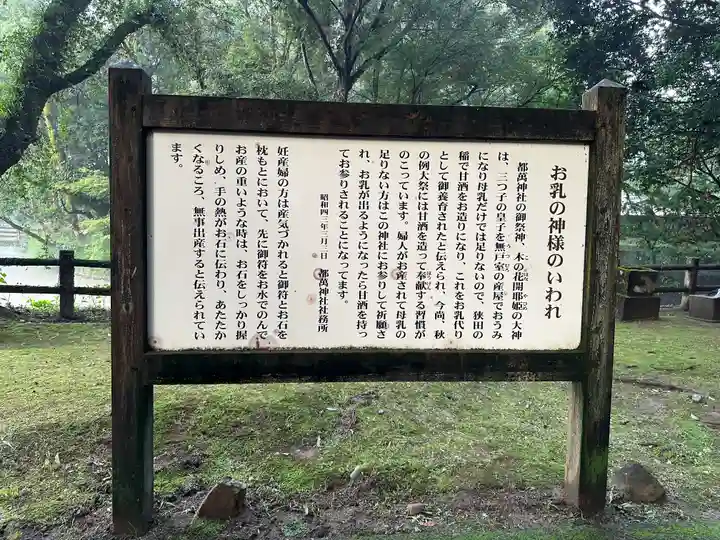 お乳の神様のいわれ
都萬神社の御祭神、木の花開耶姫の大神
は、三つ子の皇子を無戸室の産屋でおうみ
になり母乳だけでは足りないので、狭田の
稲で甘酒をお造りになり、これをお乳代り
として御養育されたと伝えられ、今尚、秋
の例大祭には甘酒を造って奉献する習慣が
のこっています。婦人がお産されて母乳の
足りない方はこの神社にお参りして祈願さ
れ、お乳が出るようになったら甘酒を持っ
てお参りされることになってます。
昭和四三年三月二一日 都萬神社社務所
妊産婦の方は産気づかれると御符とお石を
枕もとにおいて、先に御符をお水でのんで
お産の重いような時は、お石をしっかり握
りしめ、手の熱がお石に伝わり、あたたか
くなるころ、無事出産すると伝えられてい
ます。